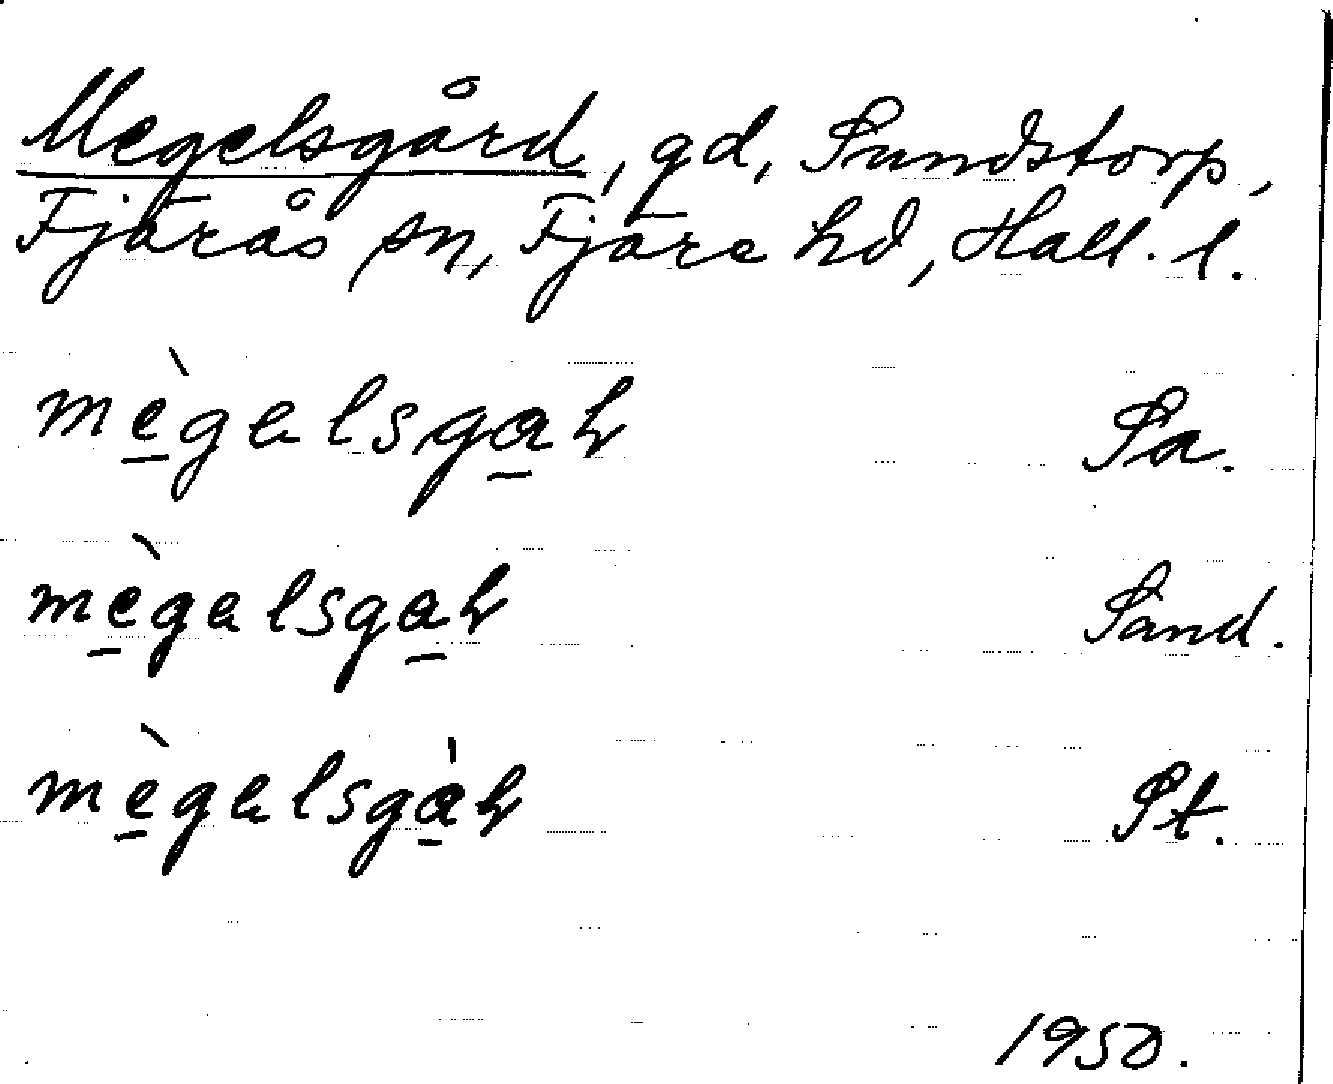 Megelsgård, gd, Sundstorp,
Fjärås sn, Fjäre hd, Hall. l.
mègəlsgaɽ Sa.
mègəlsgaɽ Sand.
mègəlsgàɽ St.
1950.